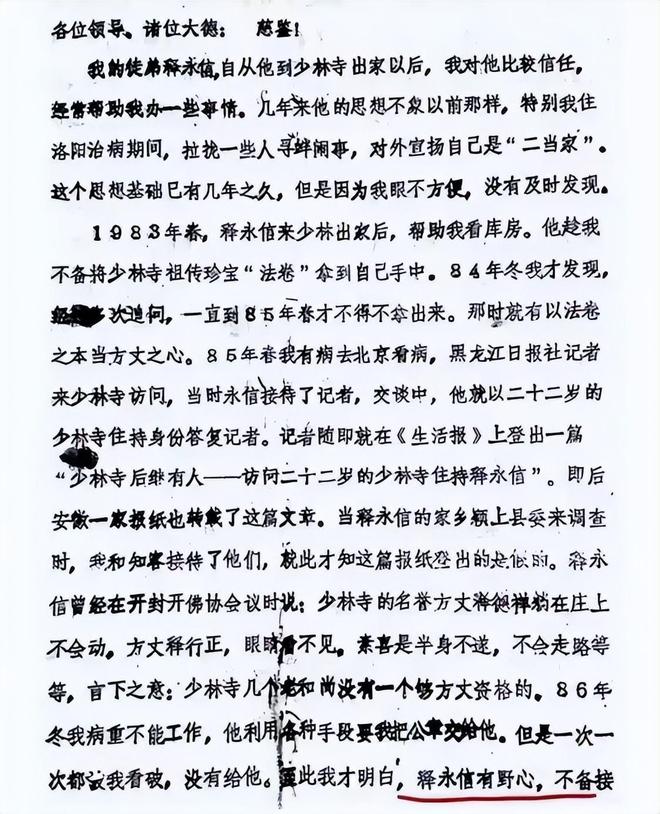 各位领导、诸位大德: 慈鉴!
我的徒弟释永信,自从他到少林寺出家以后,我对他比较信任,
经常帮助我办一些事情。几年来他的思想不象以前那样,特别我住
洛阳治病期间,拉拢一些人寻衅闹事,对外宣扬自己是“二当家”。
这个思想基础已有几年之久,但是因为我眼不方便,没有及时发现。
1983年春,释永信来少林出家后,帮助我看库房。他趁我
不备将少林寺祖传珍宝“法卷”拿到自己手中。84年冬我才发现,
多次追问,一直到85年春才不得不拿出来。那时就有以法卷
之本当方丈之心。85年春我有病去北京看病,黑龙江日报社记者
来少林寺访问,当时永信接待了记者,交谈中,他就以二十二岁的
少林寺住持身份答复记者。记者随即就在《生活报》上登出一篇
“少林寺后继有人——访问二十二岁的少林寺住持释永信”。即后
安徽一家报纸也转载了这篇文章。当释永信的家乡颍上县委来调查
时,我和知客接待了他们,就此才知这篇报纸登出的是假的。释永
信曾经在开封开佛协会议时说:少林寺的名誉方丈释德躺在庄上
不会动。方丈释行正,眼睛看不见。素喜是半身不遂,不会走路等
等,言下之意:少林寺几个老和尚没有一个够方丈资格的。86年
冬我病重不能工作,他利用各种手段要我把公章交给他。但是一次一
次都被我看破,没有给他。至此我才明白,释永信有野心,不备接